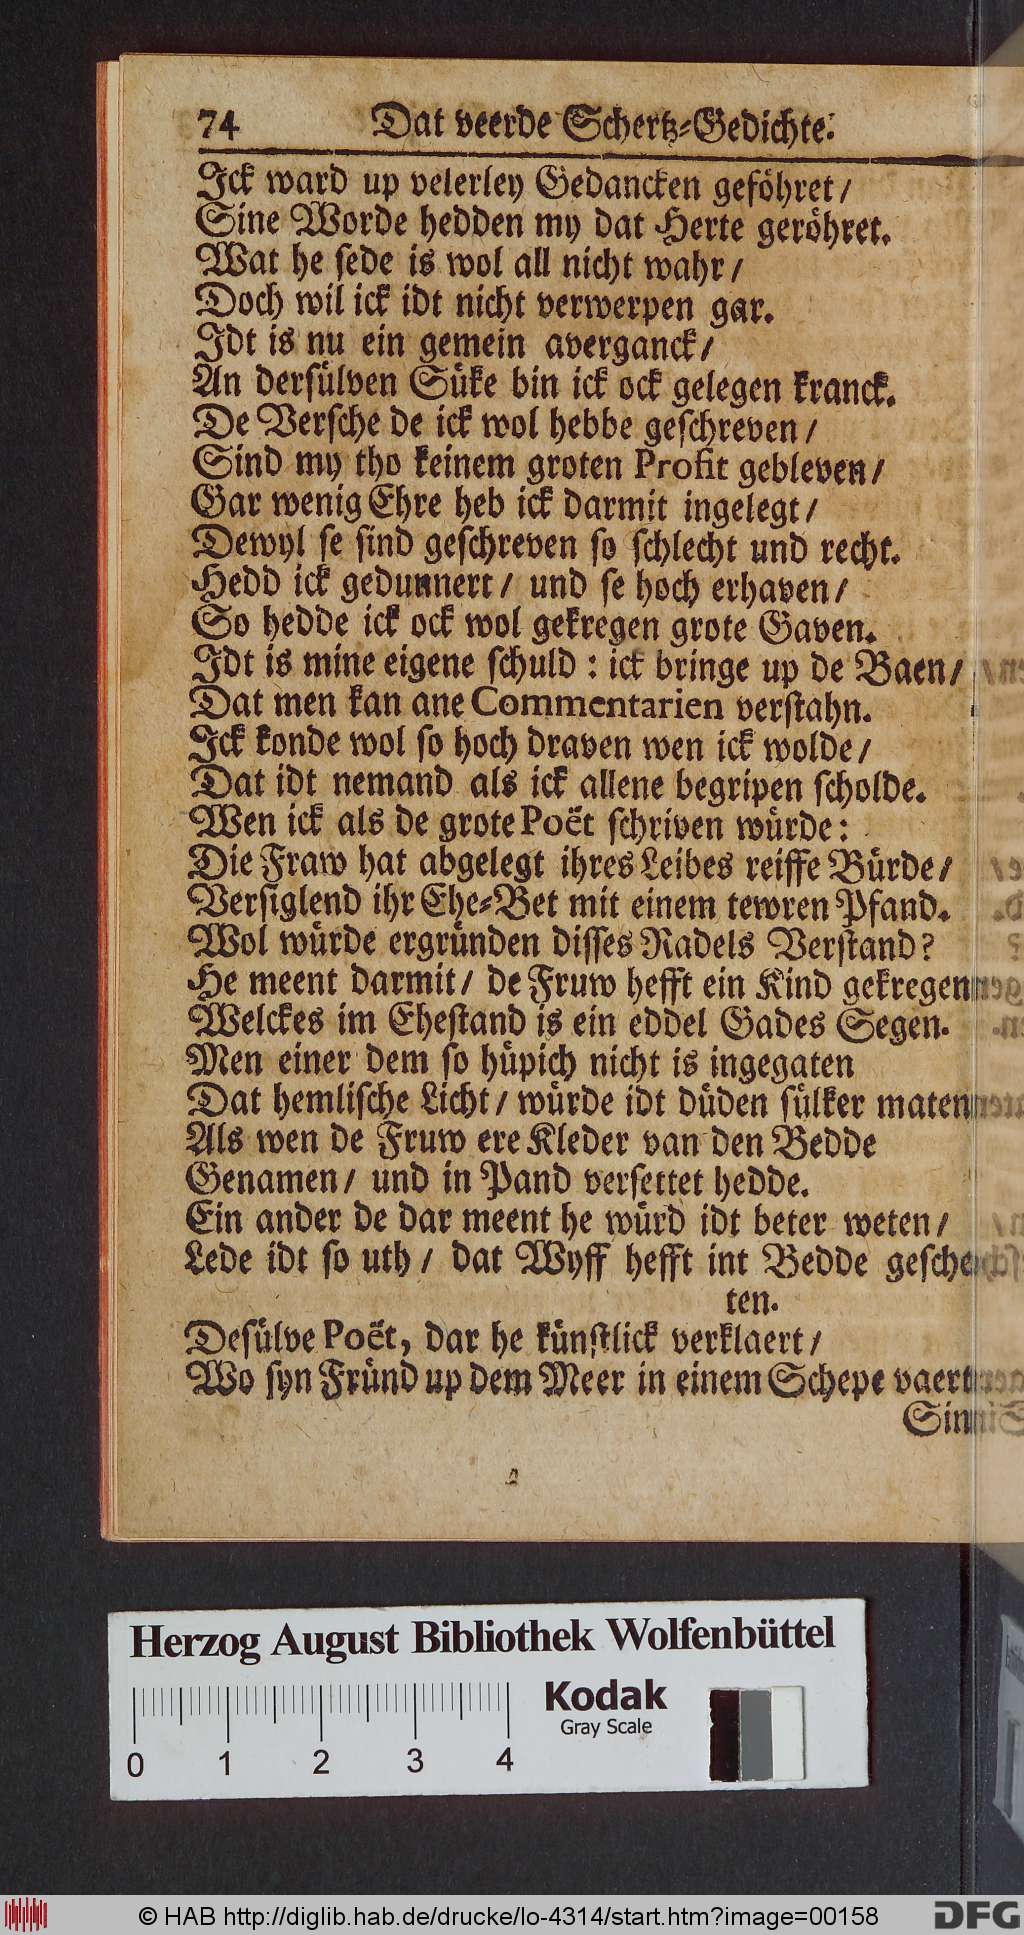 74 Dat veerde Schertz-Gedichte.
Ick ward up velerley Gedancken geföhret /
Sine Worde hedden my dat Herte geröhret.
Wat he sede is wol all nicht wahr /
Doch wil ick idt nicht verwerpen gar.
Idt is nu ein gemein averganck /
An dersülven Süke bin ick ock gelegen kranck.
De Versche de ick wol hebbe geschreven /
Sind my tho keinem groten Profit gebleven /
Gar wenig Ehre heb ick darmit ingelegt /
Dewyl se sind geschreven so schlecht und recht.
Hedd ick gedunnert / und se hoch erhaven /
So hedde ick ock wol gekregen grote Gaven.
Idt is mine eigene schuld : ick bringe up de Baen /
Dat men kan ane Commentarien verstahn.
Ick konde wol so hoch draven wen ick wolde /
Dat idt nemand als ick allene begripen scholde.
Wen ick als de grote Poët schriven würde :
Die Fraw hat abgelegt ihres Leibes reiffe Bürde /
Versiglend ihr Ehe-Bet mit einem tewren Pfand.
Wol würde ergründen disses Radels Verstand?
He meent darmit / de Fruw hefft ein Kind gekregen
Welckes im Ehestand is ein eddel Gades Segen.
Men einer dem so hüpich nicht is ingegaten
Dat hemlische Licht / würde idt düden sülker maten
Als wen de Fruw ere Kleder van den Bedde
Genamen / und in Pand versettet hedde.
Ein ander de dar meent he würd idt beter weten /
Lede idt so uth / dat Wyff hefft int Bedde gesche
ten.
Desülve Poët, dar he künstlick verklaert /
Wo syn Fründ up dem Meer in einem Schepe vaert
Sin
Herzog August Bibliothek Wolfenbüttel
Kodak
Gray Scale
0 1 2 3 4
© HAB http://diglib.hab.de/drucke/lo-4314/start.htm?image=00158
DFG